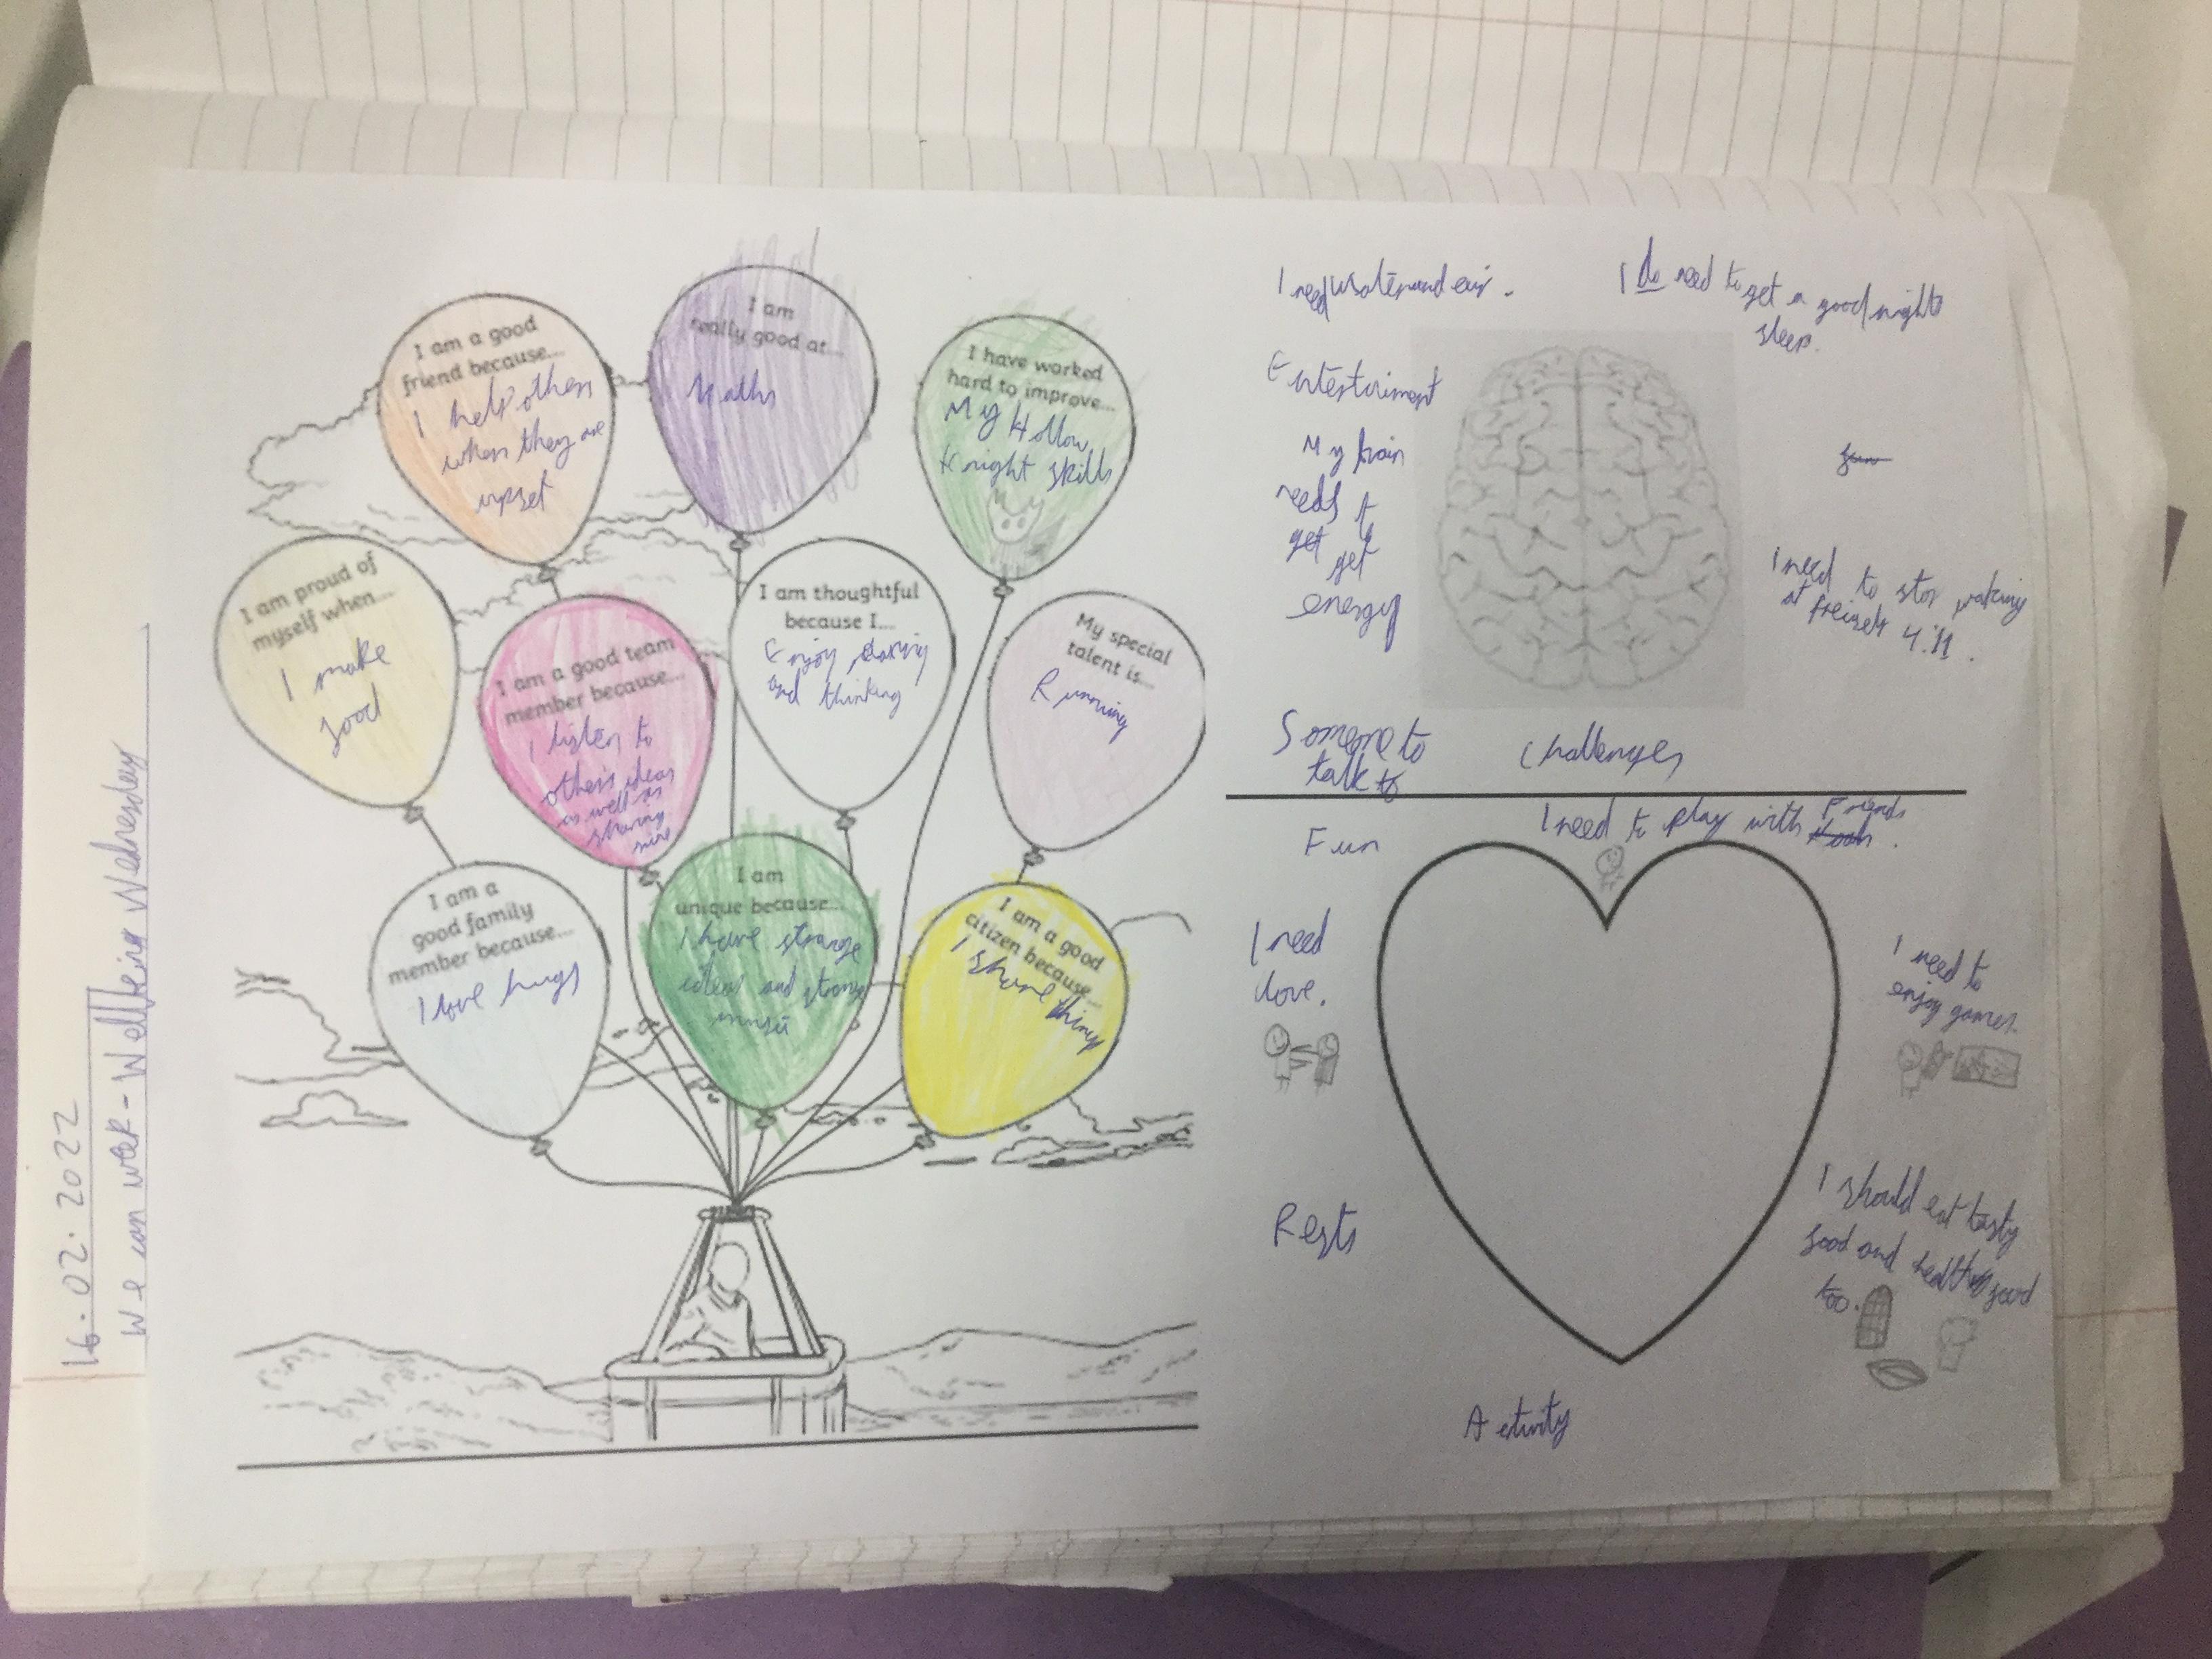 16.02.2022
We can week - Wellbeing Wednesday
I am a good
friend because...
I help others
when they are
upset
I am
really good at...
Maths
I have worked
hard to improve...
My Hollow
Knight skills
I am proud of
myself when...
I make
food
I am a good team
member because...
I listen to
others ideas
as well as
sharing
mine
I am thoughtful
because I...
Enjoy
and thinking
My special
talent is...
Running
I am a
good family
member because...
I love hugs
I am
unique because...
I have strange
ideas and strange
I am a good
citizen because...
I share things
I need water and air.
I do need to get a good nights
sleep.
Entertainment
My brain
needs t
get
get
energy
fun
I need to stop waking
at 4:11.
Someone to
talk to
Challenges
Fun
I need to play with Friends
.
I need
love.
I need to
enjoy games.
Rests
I should eat tasty
food and healthy food
too.
Activity